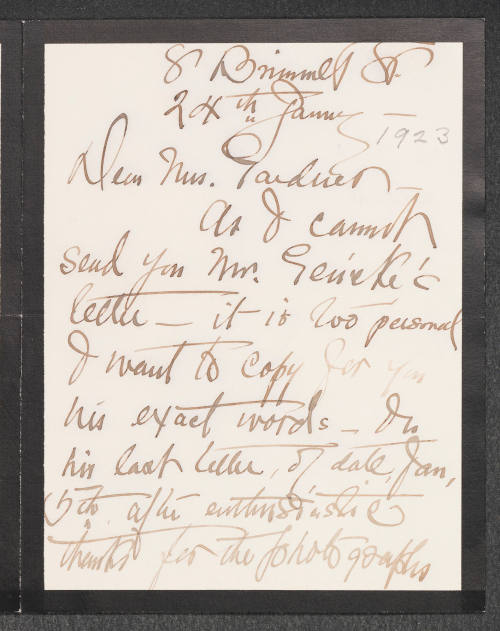 8 Brimmer St.
24th Janny —
1923
Dear Mrs. Gardner —
As I cannot
send you Mr. Gericke's
letter — it is too personal
I want to copy for you
his exact words — In
his last letter, of date, Jan,
5th after enthusiastic
thanks for the photographs